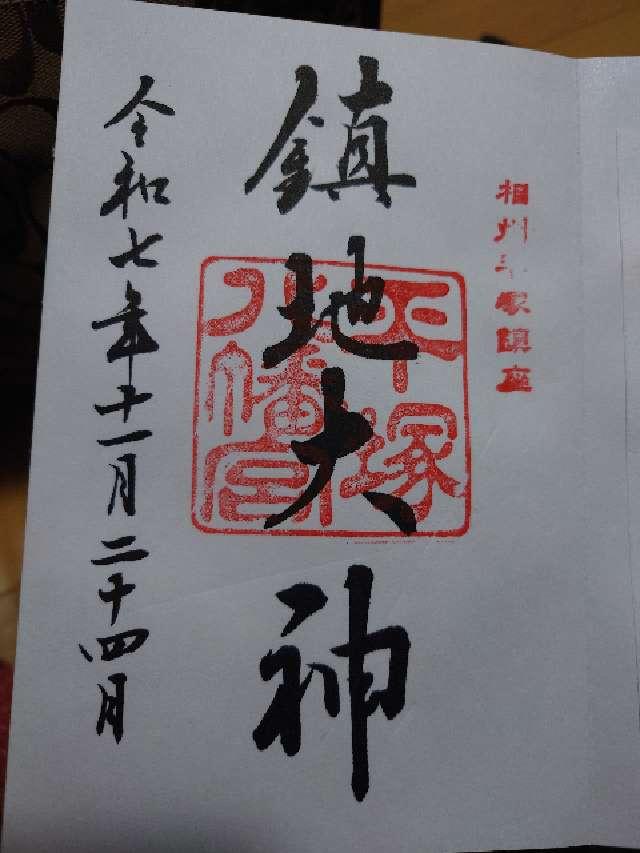 相州平塚鎮座
鎮地大神
平塚八幡宮
令和七年十一月二十四月